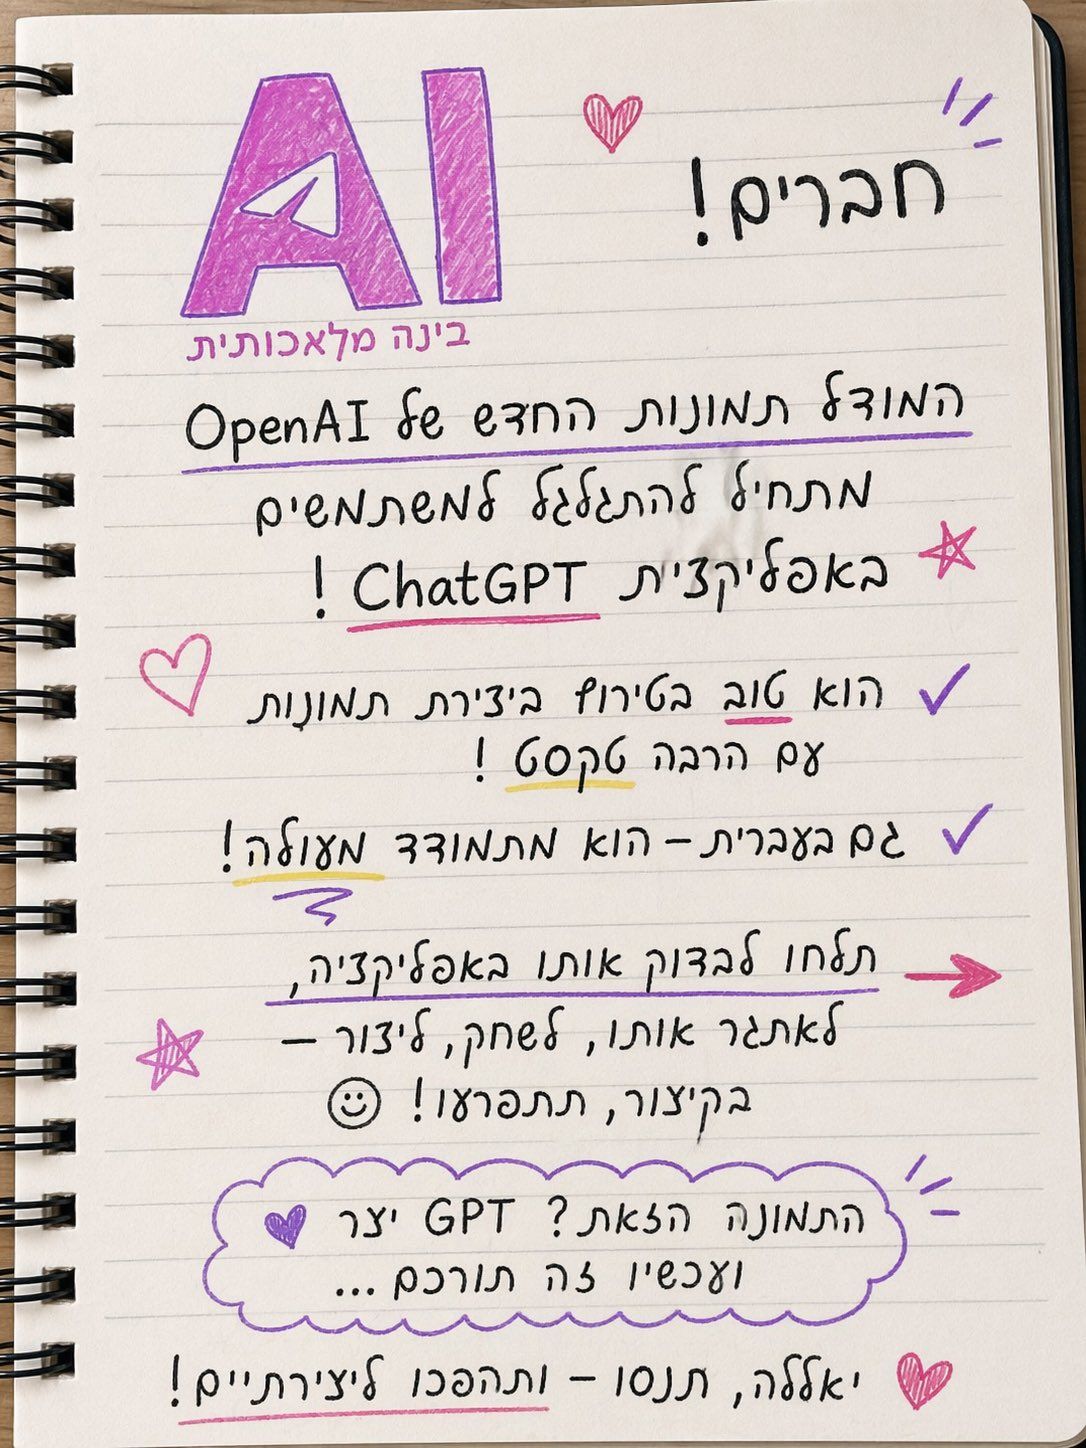 AI
בינה מלאכותית
חברים!
המודל תמונות החדש של OpenAI
מתחיל להתגלגל למשתמשים
באפליקצית ChatGPT !
הוא טוב בטירוף ביצירת תמונות
עם הרבה טקסט !
גם בעברית – הוא מתמודד מעולה!
תלחו לבדוק אותו באפליקציה,
לאתגר אותו, לשחק, ליצור –
בקיצור, תתפרעו! ☺
התמונה הזאת? GPT יצר
ועכשיו זה תורכם...
יאללה, תנסו – ותהפכו ליצירתיים!